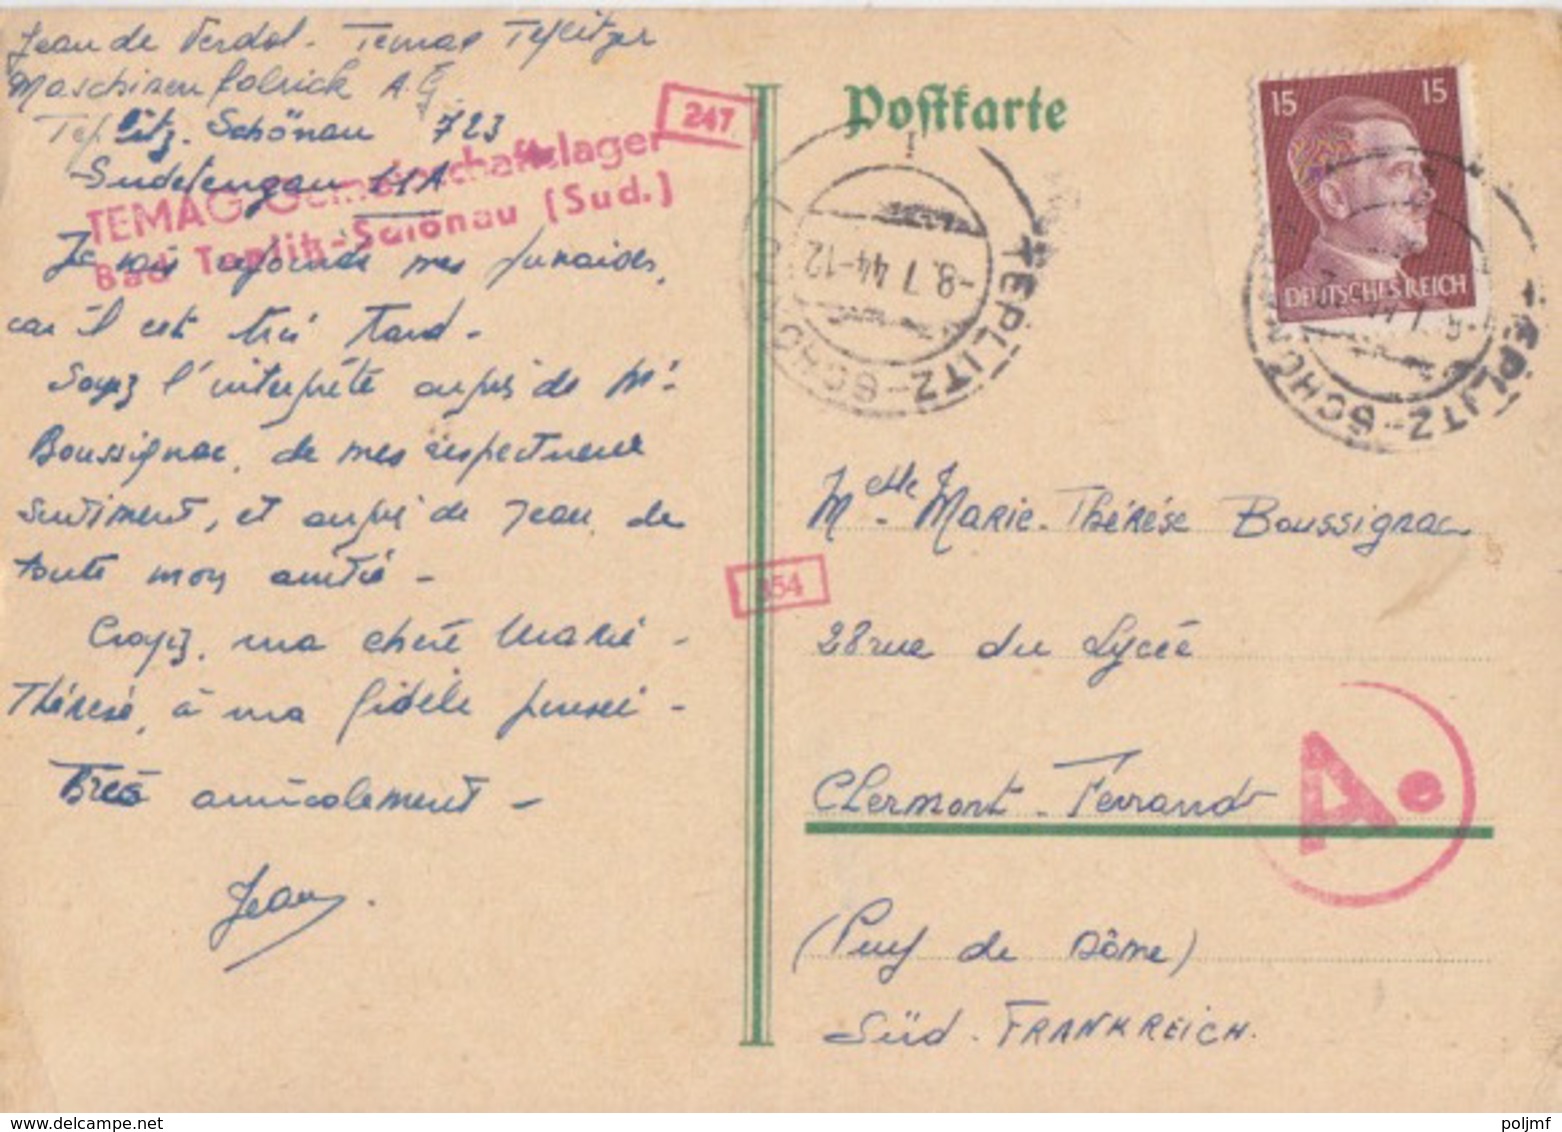 Jean de Verdal. Temag Teplitzer
Maschinenfabrick A.G.
Teplitz. Schönau 723
Sudetengau 11A
TEMAG-Gemeinschaftslager
Bad Teplitz-Schönau (Sud.)
247
Je vais rejoindre mes punaises,
car il est très tard -
Soyez l'interprète auprès de Mr
Boussignac, de mes respectueux
sentiments, et auprès de Jean, de
toute mon amitié -
Croyez, ma chère Marie-
Thérèse, à ma fidèle pensée -
Très amicalement -
Jean.
Postkarte
15 15
DEUTSCHES REICH
TEPLITZ-SCHÖNAU
-8.7.44-12
TEPLITZ-SCHÖN
Melle Marie-Thérèse Boussignac
28 rue du Lycée
Clermont-Ferrand
(Puy de Dôme)
Süd-FRANKREICH.
354
Ae
poljmf
www.delcampe.net